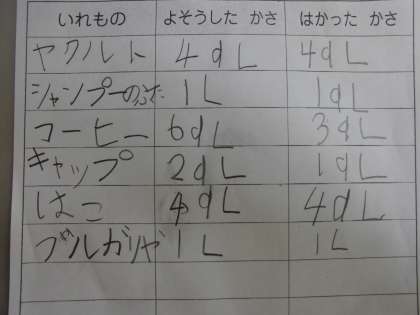 いれもの よそうした かさ はかった かさ
ヤクルト 4dL 4dL
シャンプーのふた 1L 1dL
コーヒー 6dL 3dL
キャップ 2dL 1dL
はこ 4dL 4dL
ブルガリヤ 1L 1L